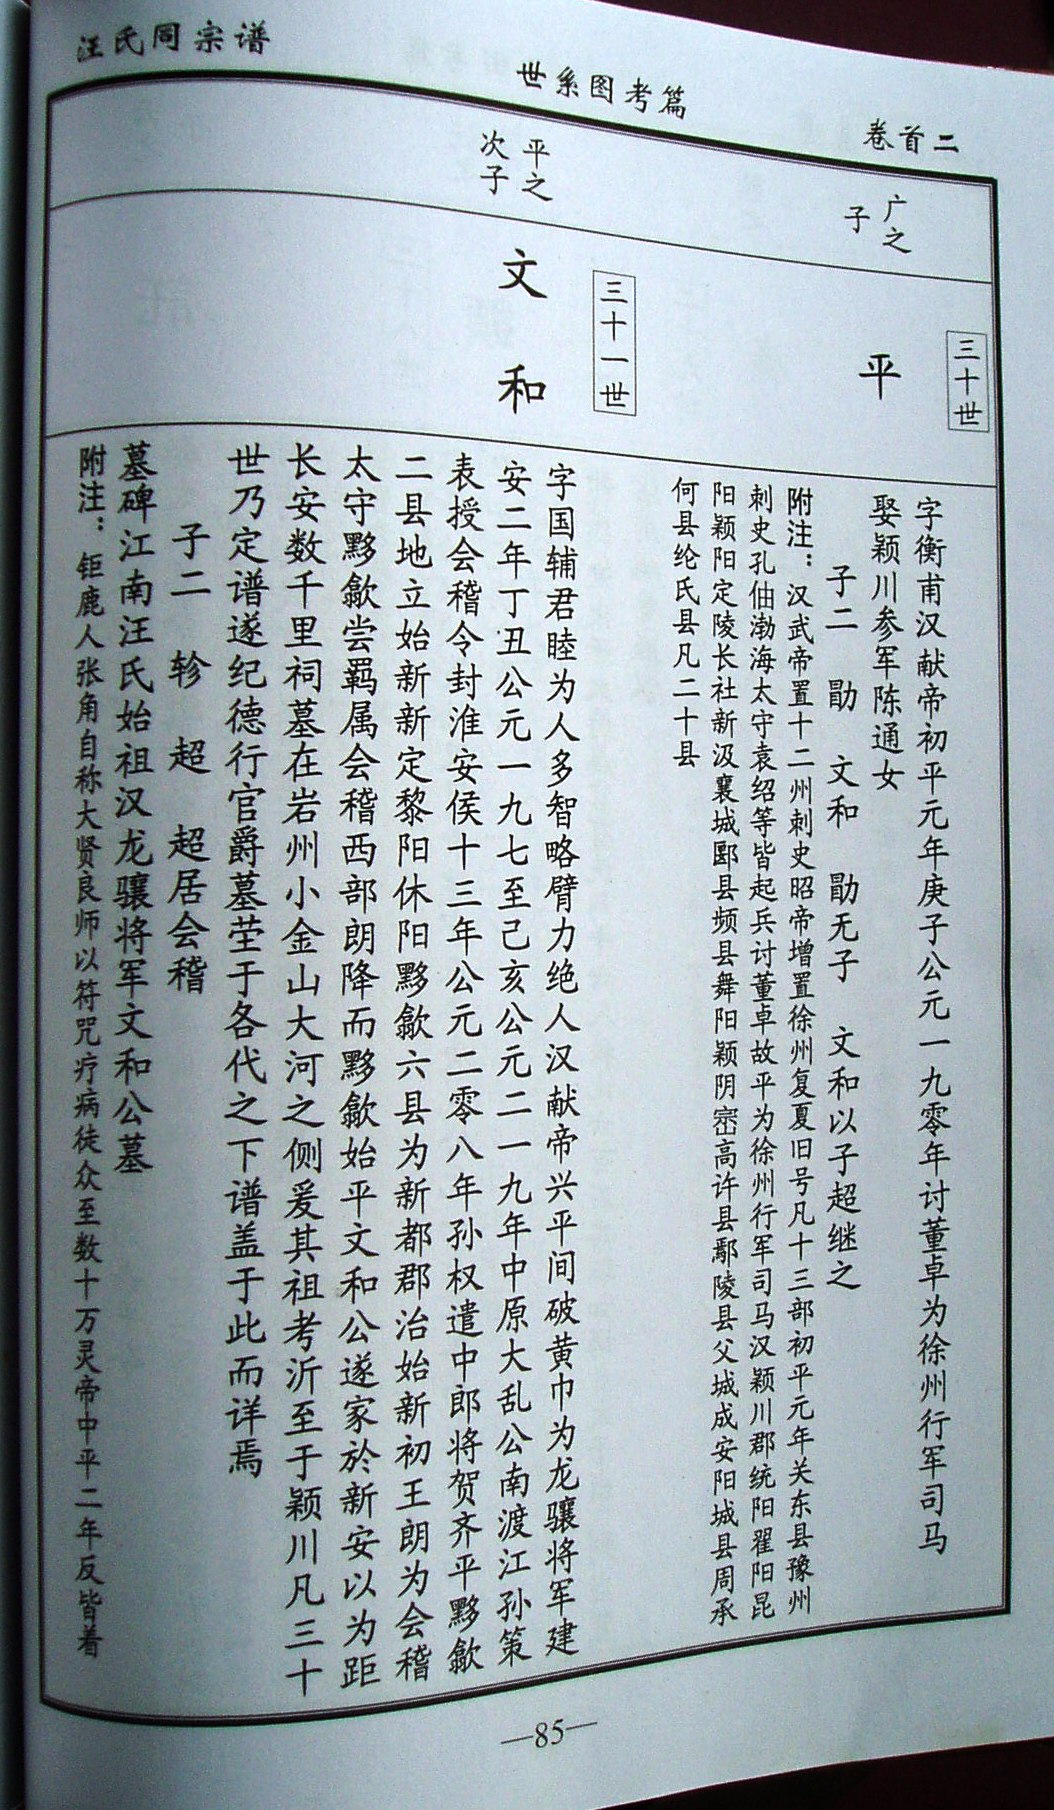 汪氏同宗谱
世系图考篇
卷首二
三十世
广之
子
平
字衡甫汉献帝初平元年庚子公元一九零年讨董卓为徐州行军司马
娶颖川参军陈通女
子二 勖 文和 勖无子 文和以子超继之
附注：汉武帝置十二州刺史昭帝增置徐州复夏旧号凡十三部初平元年关东县豫州
刺史孔伷渤海太守袁绍等皆起兵讨董卓故平为徐州行军司马汉颖川郡统阳翟阳昆
阳颖阳定陵长社新汲襄城郾县颎县舞阳颖阴密高许县鄢陵县父城成安阳城县周承
何县纶氏县凡二十县
三十一世
平之
次子
文和
字国辅君睦为人多智略臂力绝人汉献帝兴平间破黄巾为龙骧将军建
安二年丁丑公元一九七至己亥公元二一九年中原大乱公南渡江孙策
表授会稽令封淮安侯十三年公元二零八年孙权遣中郎将贺齐平黟歙
二县地立始新新定黎阳休阳黟歙六县为新都郡治始新初王朗为会稽
太守黟歙尝羁属会稽西部朗降而黟歙始平文和公遂家於新安以为距
长安数千里祠墓在岩州小金山大河之侧爰其祖考沂至于颖川凡三十
世乃定谱遂纪德行官爵墓茔于各代之下谱盖于此而详焉
子二 轸 超 超居会稽
墓碑江南汪氏始祖汉龙骧将军文和公墓
附注：钜鹿人张角自称大贤良师以符咒疗病徒众至数十万灵帝中平二年反皆着
—85—